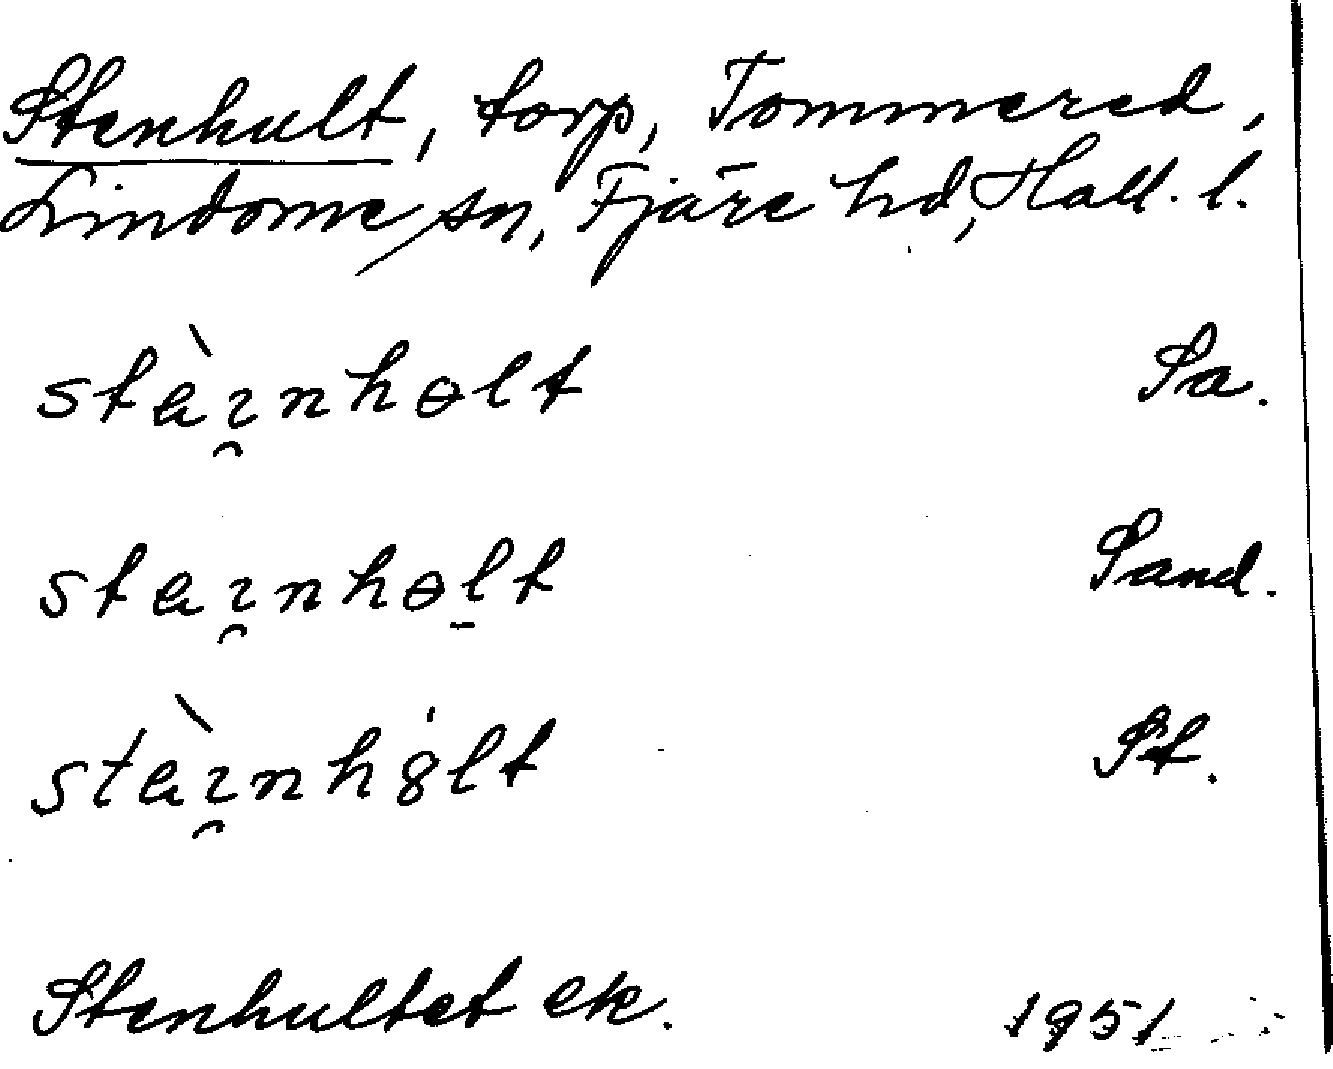 Stenhult, torp, Tommered,
Lindome sn, Fjäre hd, Hall. l.
stàɪ̯nhɵlt Sa.
staɪ̯nhɵl̠t Sand.
stàɪ̯nh8̍lt St.
Stenhultet ek. 1951